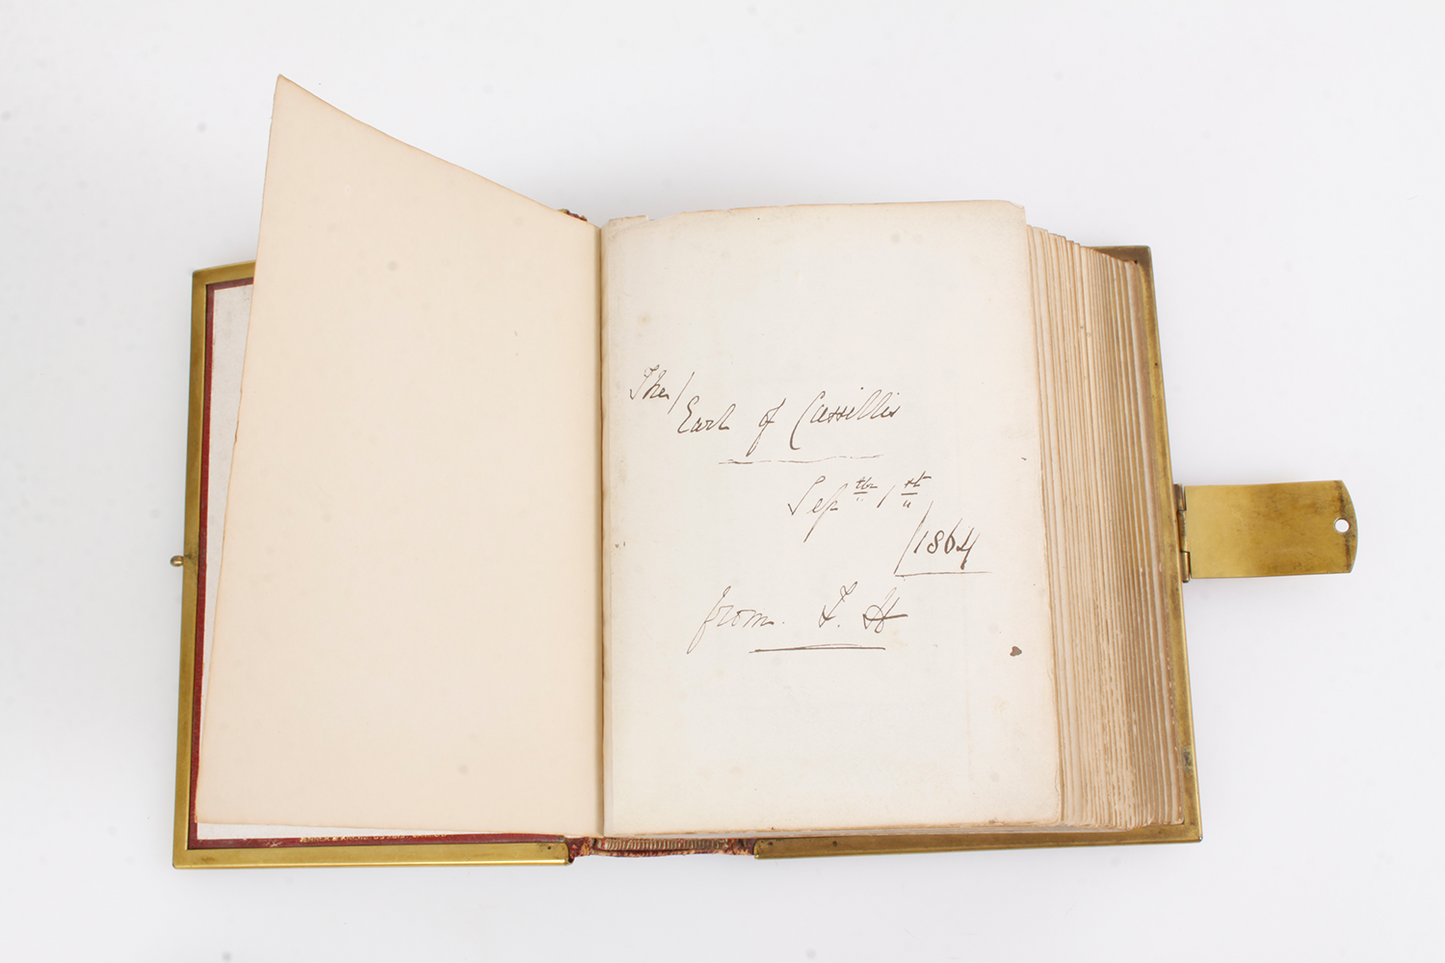 The/
Earl of Cassillis
Sep tbr 1 st
/1864
from. F. H